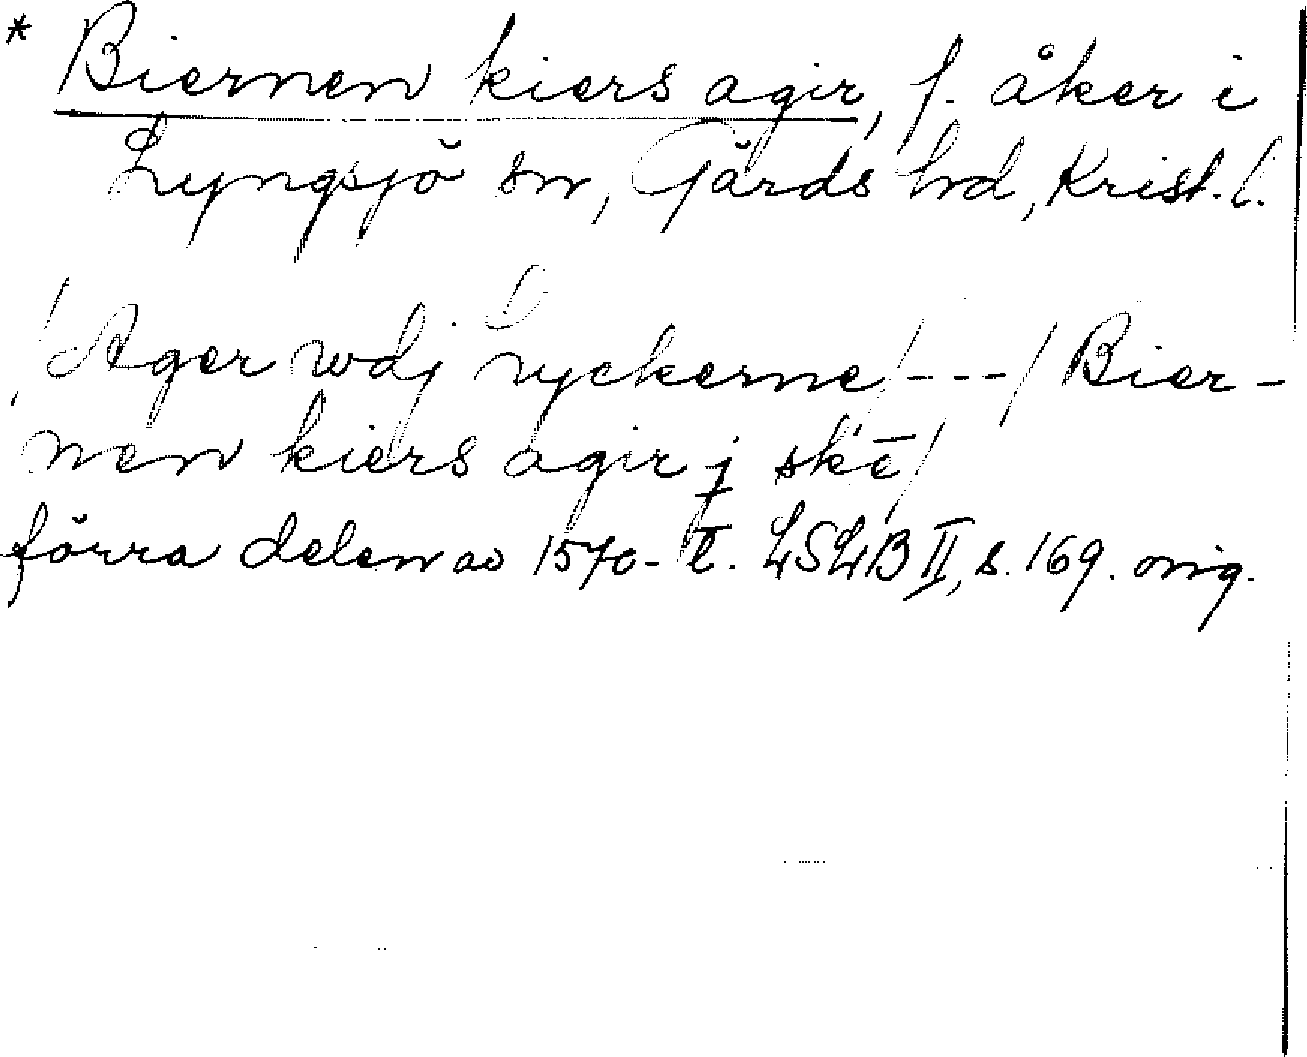 * Biernen kiers agir, f. åker i
Lyngsjö sn, Gärds hd, Krist. l.
/Ager wdj ryckerne/---/Bier-
nen kiers agir j skē/
förra delen av 1570-t. LSLB II, s. 169. orig.